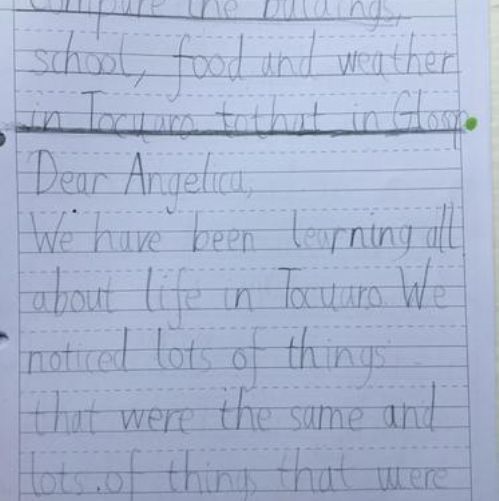 Compare the buildings,
school, food and weather
in Tocuaro to that in Gloop
Dear Angelica,
We have been learning all
about life in Tocuaro. We
noticed lots of things
that were the same and
lots of things that were